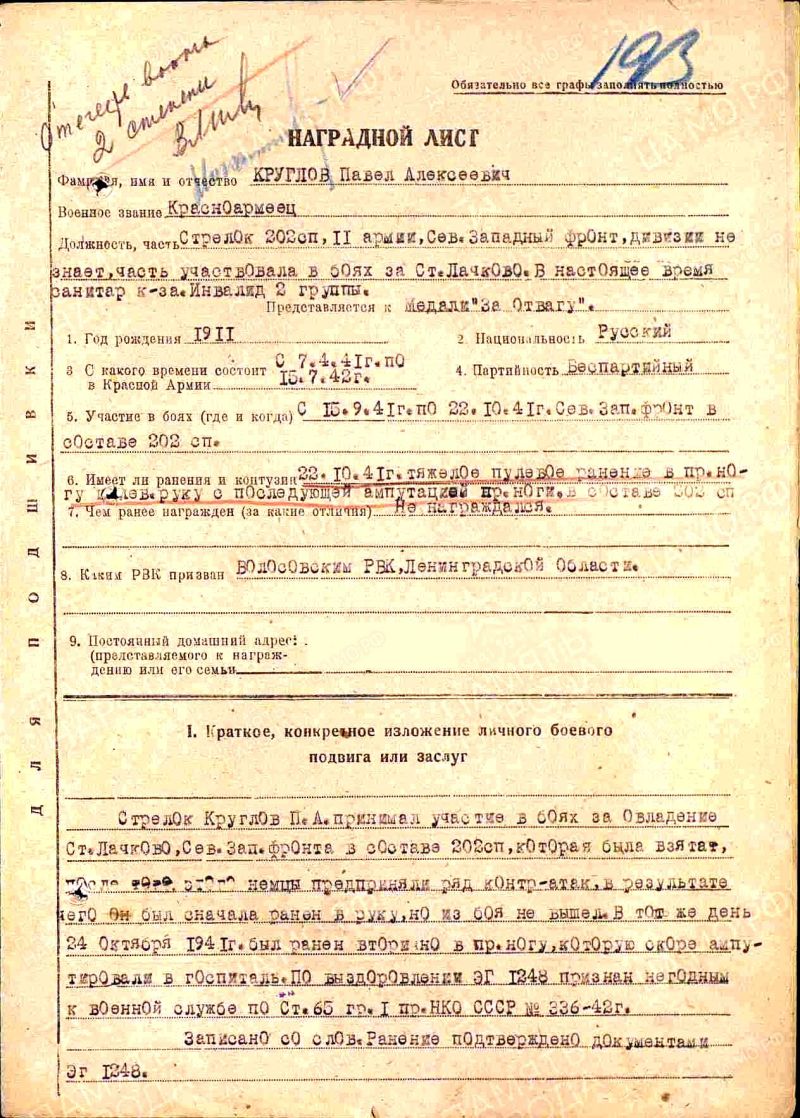 193
Обязательно все графы заполнять полностью
Отечеств войны
2 степени
НАГРАДНОЙ ЛИСТ
Фамилия, имя и отчество КРУГЛОВ Павел Алексеевич
Военное звание Красноармеец
Должность, часть Стрелок 202сп, II армии, Сев.Западный фронт, дивизии не
знает, часть участвовала в боях за Ст.Лачково. В настоящее время
санитар к-за. Инвалид 2 группы.
Представляется к Медали "За Отвагу".
1. Год рождения 1911
2 Национальность Русский
3 С какого времени состоит С 7.4.41г. по
в Красной Армии 15.7.42г.
4. Партийность Беспартийный
5. Участие в боях (где и когда) С 15.9.41г. по 22.10.41г. Сев.Зап.фронт в
составе 202 сп.
6. Имеет ли ранения и контузии 22.10.41г. тяжелое пулевое ранение в пр.но-
гу и лев.руку с последующей ампутацией пр.ноги, в составе 202 сп
7. Чем ранее награжден (за какие отличия) Не награждался.
8. Каким РВК призван Волосовским РВК, Ленинградской Области.
9. Постоянный домашний адрес: .
(представляемого к награж-
дению или его семьи
ДЛЯ ПОДШИВКИ
I. Краткое, конкретное изложение личного боевого
подвига или заслуг
Стрелок Круглов П.А. принимал участие в боях за Овладение
Ст.Лачково, Сев.Зап.фронта в составе 202сп, которая была взятат,
после того этого немцы предприняли ряд контр-атак, в результате
чего Он был сначала ранен в руку, но из боя не вышел. В тот же день
24 Октября 1941г. был ранен вторично в пр.ногу, которую скоре ампу-
тировали в госпиталь. По выздоровлении ЭГ 1248 признан негодным
к военной службе по Ст.65 гр.I пр.НКО СССР № 336-42г.
Записано со слов. Ранение подтверждено документами
ЭГ 1248.